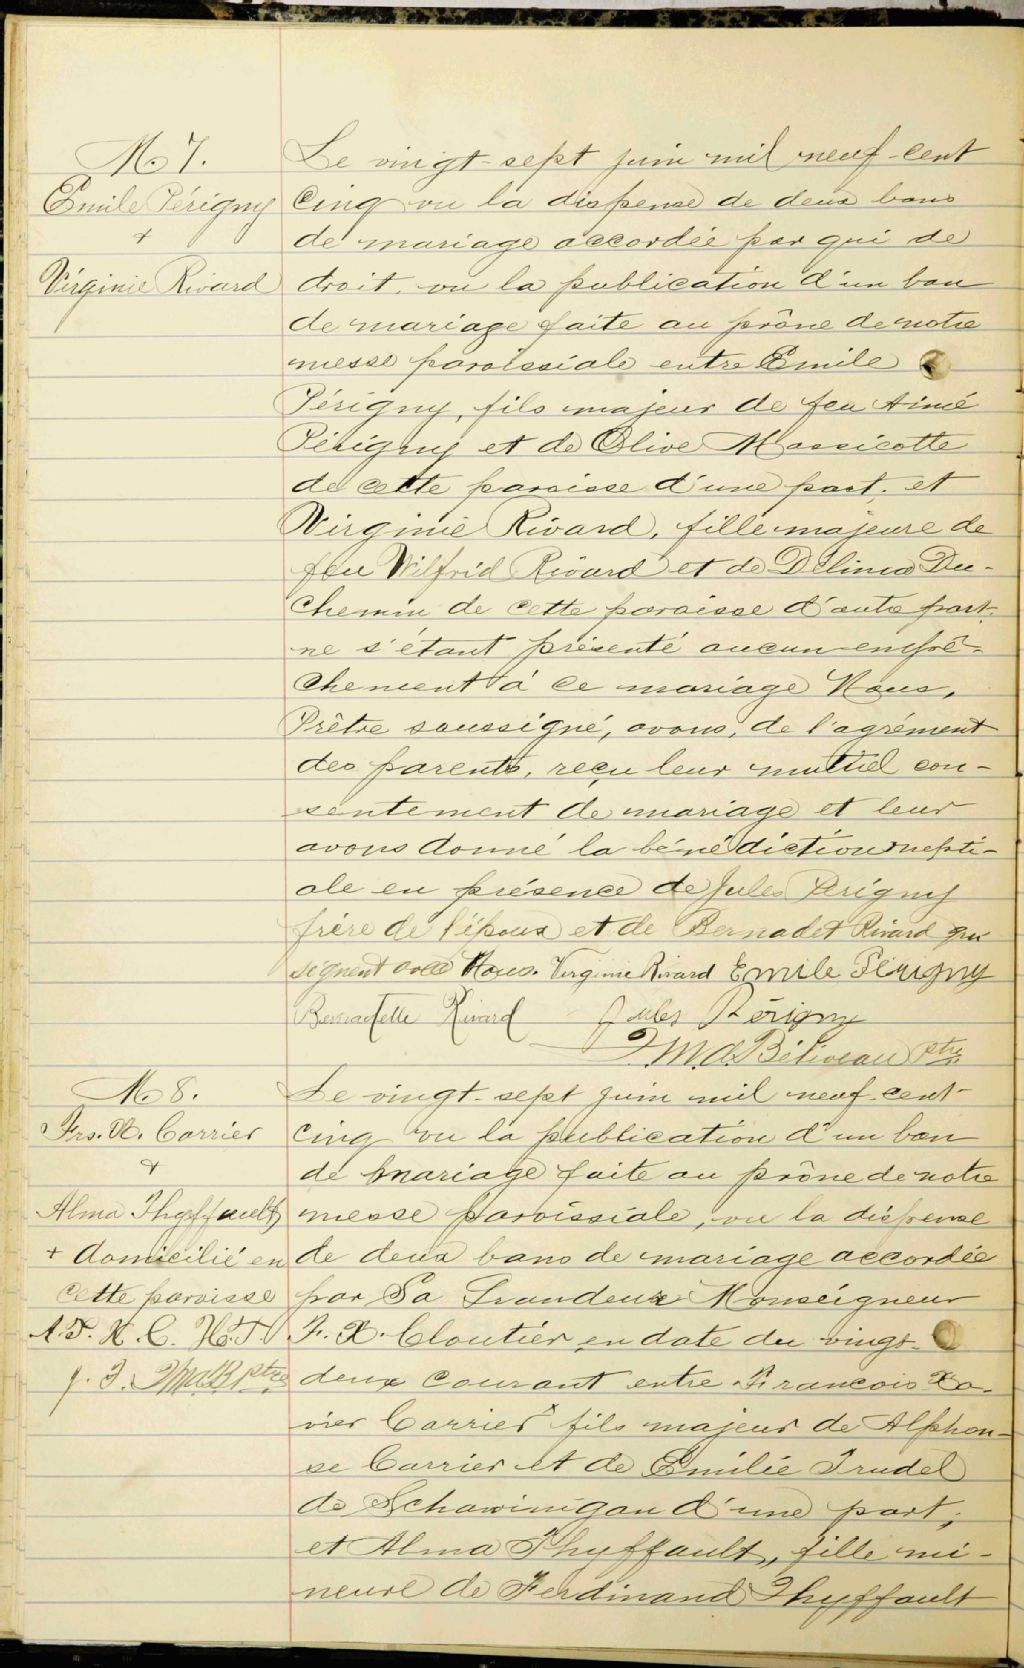 M. 7.
Emile Périgny
+
Virginie Rivard
Le vingt-sept juin mil neuf-cent
cinq vu la dispense de deux bans
de mariage accordée par qui de
droit, vu la publication d'un ban
de mariage faite au prône de notre
messe paroissiale entre Emile
Périgny, fils majeur de feu Aimé
Périgny et de Olive Massicotte
de cette paroisse d'une part, et
Virginie Rivard, fille majeure de
feu Wilfrid Rivard et de Délima Du-
chemin de cette paroisse d'autre part,
ne s'étant présenté aucun empê-
chement à ce mariage Nous,
Prêtre soussigné, avons, de l'agrément
des parents, reçu leur mutuel con-
sentement de mariage et leur
avons donné la bénédiction nupti-
ale en présence de Jules Périgny
frère de l'époux et de Bernadet Rivard qui
signent avec Nous. Virginie Rivard Emile Périgny
Bernadette Rivard Jules Périgny
Béliveau ptre
M. 8.
Frs. X. Carrier
+
Alma Thyffault
+ domicilié en
cette paroisse
A.T. X. C. H.T.
J. T. ptre
Le vingt-sept juin mil neuf-cent-
cinq vu la publication d'un ban
de mariage faite au prône de notre
messe paroissiale, vu la dispense
de deux bans de mariage accordée
par Sa Grandeur Monseigneur
F. X. Cloutier en date du vingt-
deux courant entre Francois Xa-
vier Carrier + fils majeur de Alphon-
se Carrier et de Emilie Trudel
de Schawinigan d'une part,
et Alma Thyffault, fille mi-
neure de Ferdinand Thyffault